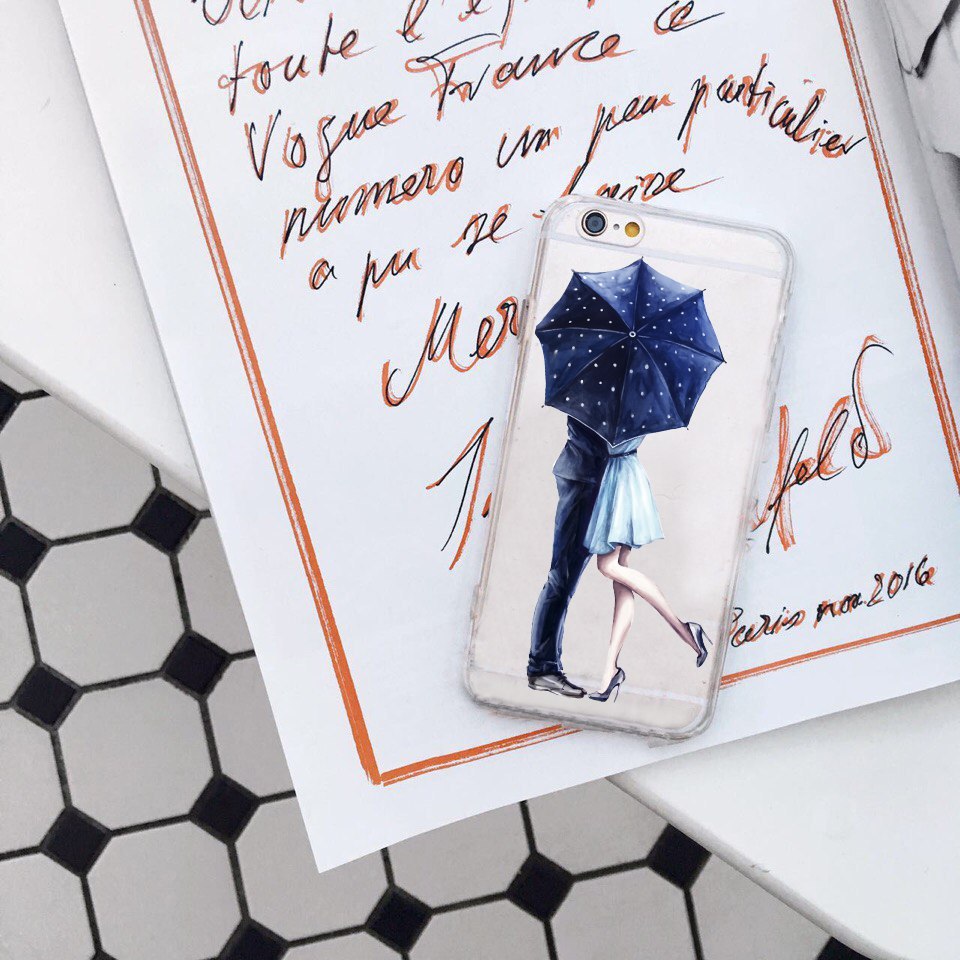 toute l'
Vogue France ce
numero un peu particulier
a pu se faire
Mer
J. feld
Paris nov 2016